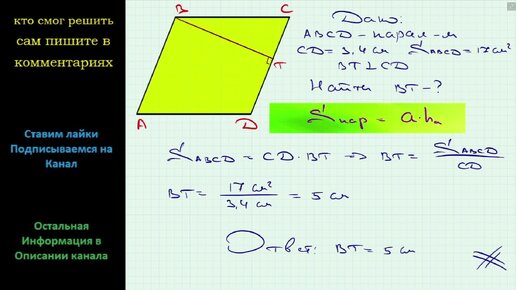 кто смог решить
сам пишите в
комментариях
Ставим лайки
Подписываемся на
Канал
Остальная
Информация в
Описании канала
B
C
T
A
D
Дано:
ABCD – парал-м
CD = 3,4 см S ABCD = 17 см²
BT ⊥ CD
Найти BT - ?
S пар = a·hₐ
S ABCD = CD · BT ⇒ BT = S ABCD / CD
BT = 17 см² / 3,4 см = 5 см
Ответ: BT = 5 см